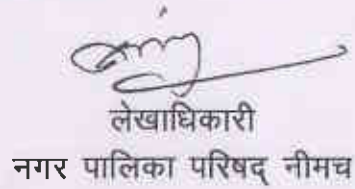 लेखाधिकारी
नगर पालिका परिषद् नीमच